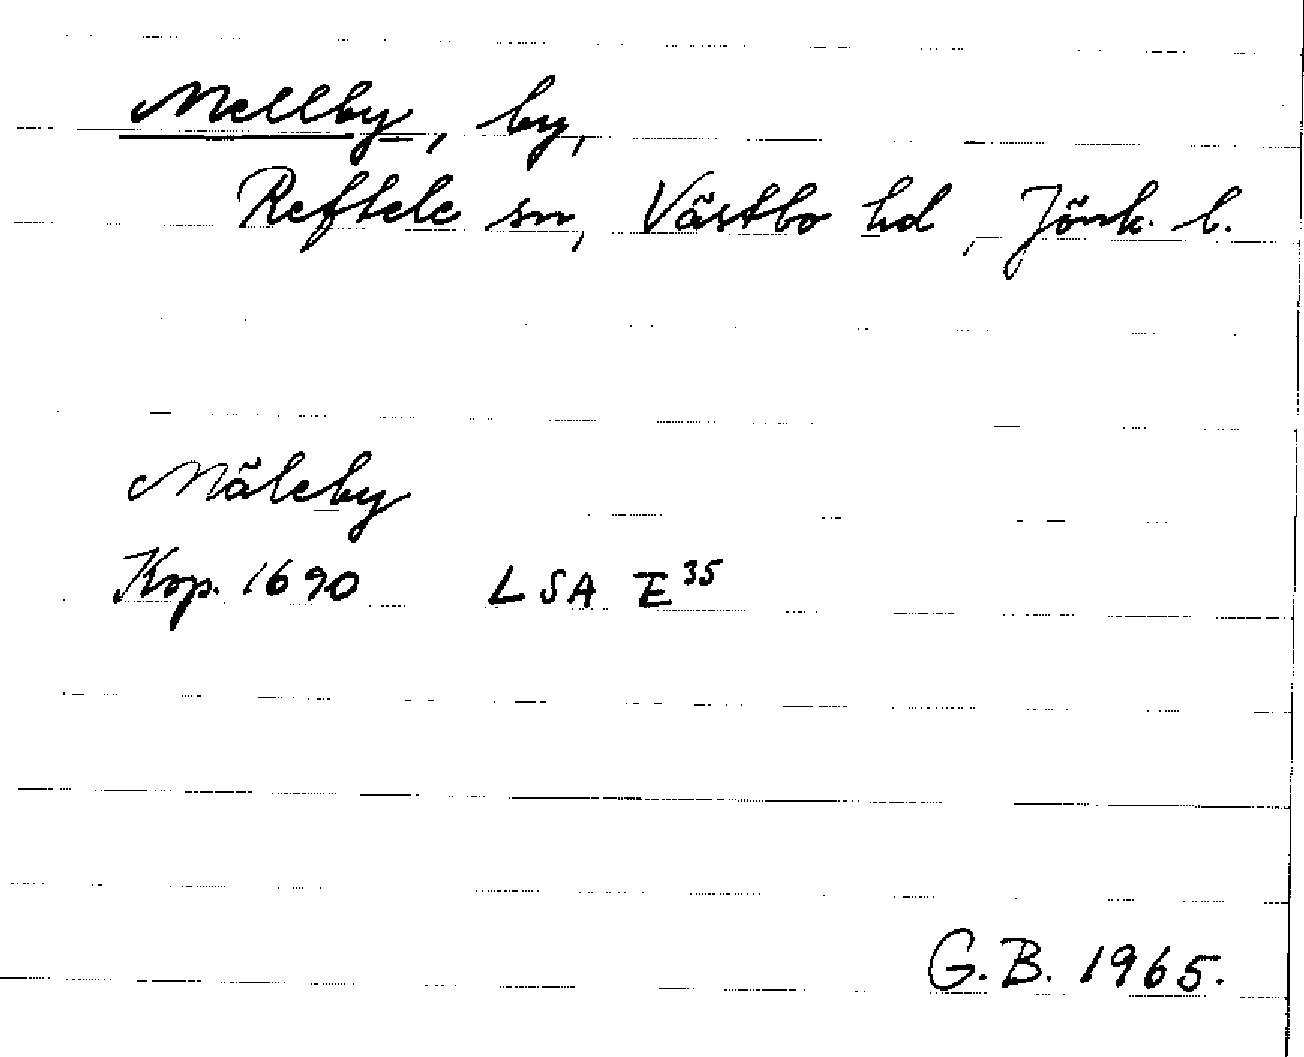 Mellby, by,
Reftele sn, Västbo hd, Jönk. l.
Mäleby
Kop. 1690 LSA E³⁵
G. B. 1965.